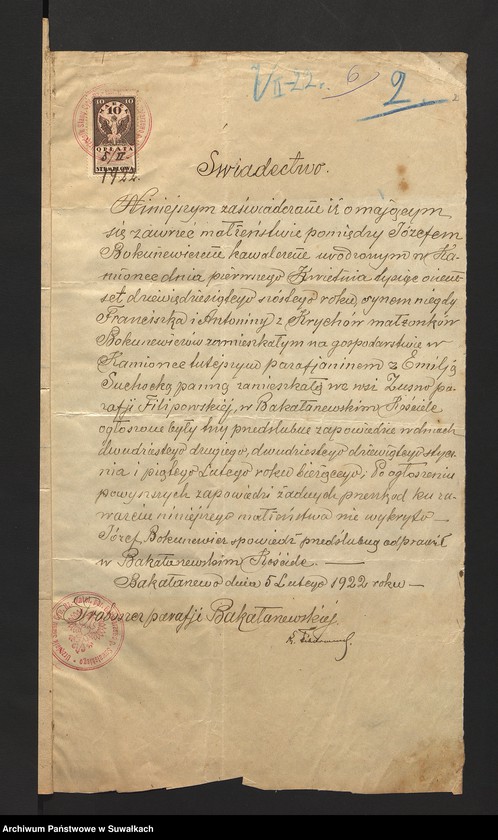 V II-22. 6) 2
2
10 10
10
OPŁATA
5/II
STEMPLOWA
1922.
Świadectwo.
Niniejszym zaświadczam iż o mającym
się zawrzeć małżenstwie pomiędzy Józefem
Bokuniewiczem kawalerem urodzonym w Ka-
mionce dnia pierwszego Kwietnia tysiąc ośiem-
set dziewiędziesiątego szóstego roku, synem niegdy
Franciszka i Antoniny z Krychów małżonków
Bokuniewiczów zamieszkałym na gospodarstwie w
Kamionce tutejszym parafjaninem z Emilją
Suchocką panną zamieszkałą we wsi Zusno pa-
rafji Filipowskiéj, w Bakałarzewskim Kościele
ogłoszone były trzy przedślubne zapowiedzie w dniach
dwudziestego drugiego, dwudziestego dziewiątego stycz-
nia i piątego Lutego roku bieżącego; Po ogłoszeniu
powyższych zapowiedzi żadnych przeszkod ku za-
warciu niniejszego małżeństwa nie wykryto —
Józef Bokuniewicz spowiedź przedślubną odprawił
w Bakałarzewskim Kościele. —
Bakałarzewo dnia 5 Lutego 1922 roku —
Proboszcz parafji Bakałarzewskiéj.
Archiwum Państwowe w Suwałkach